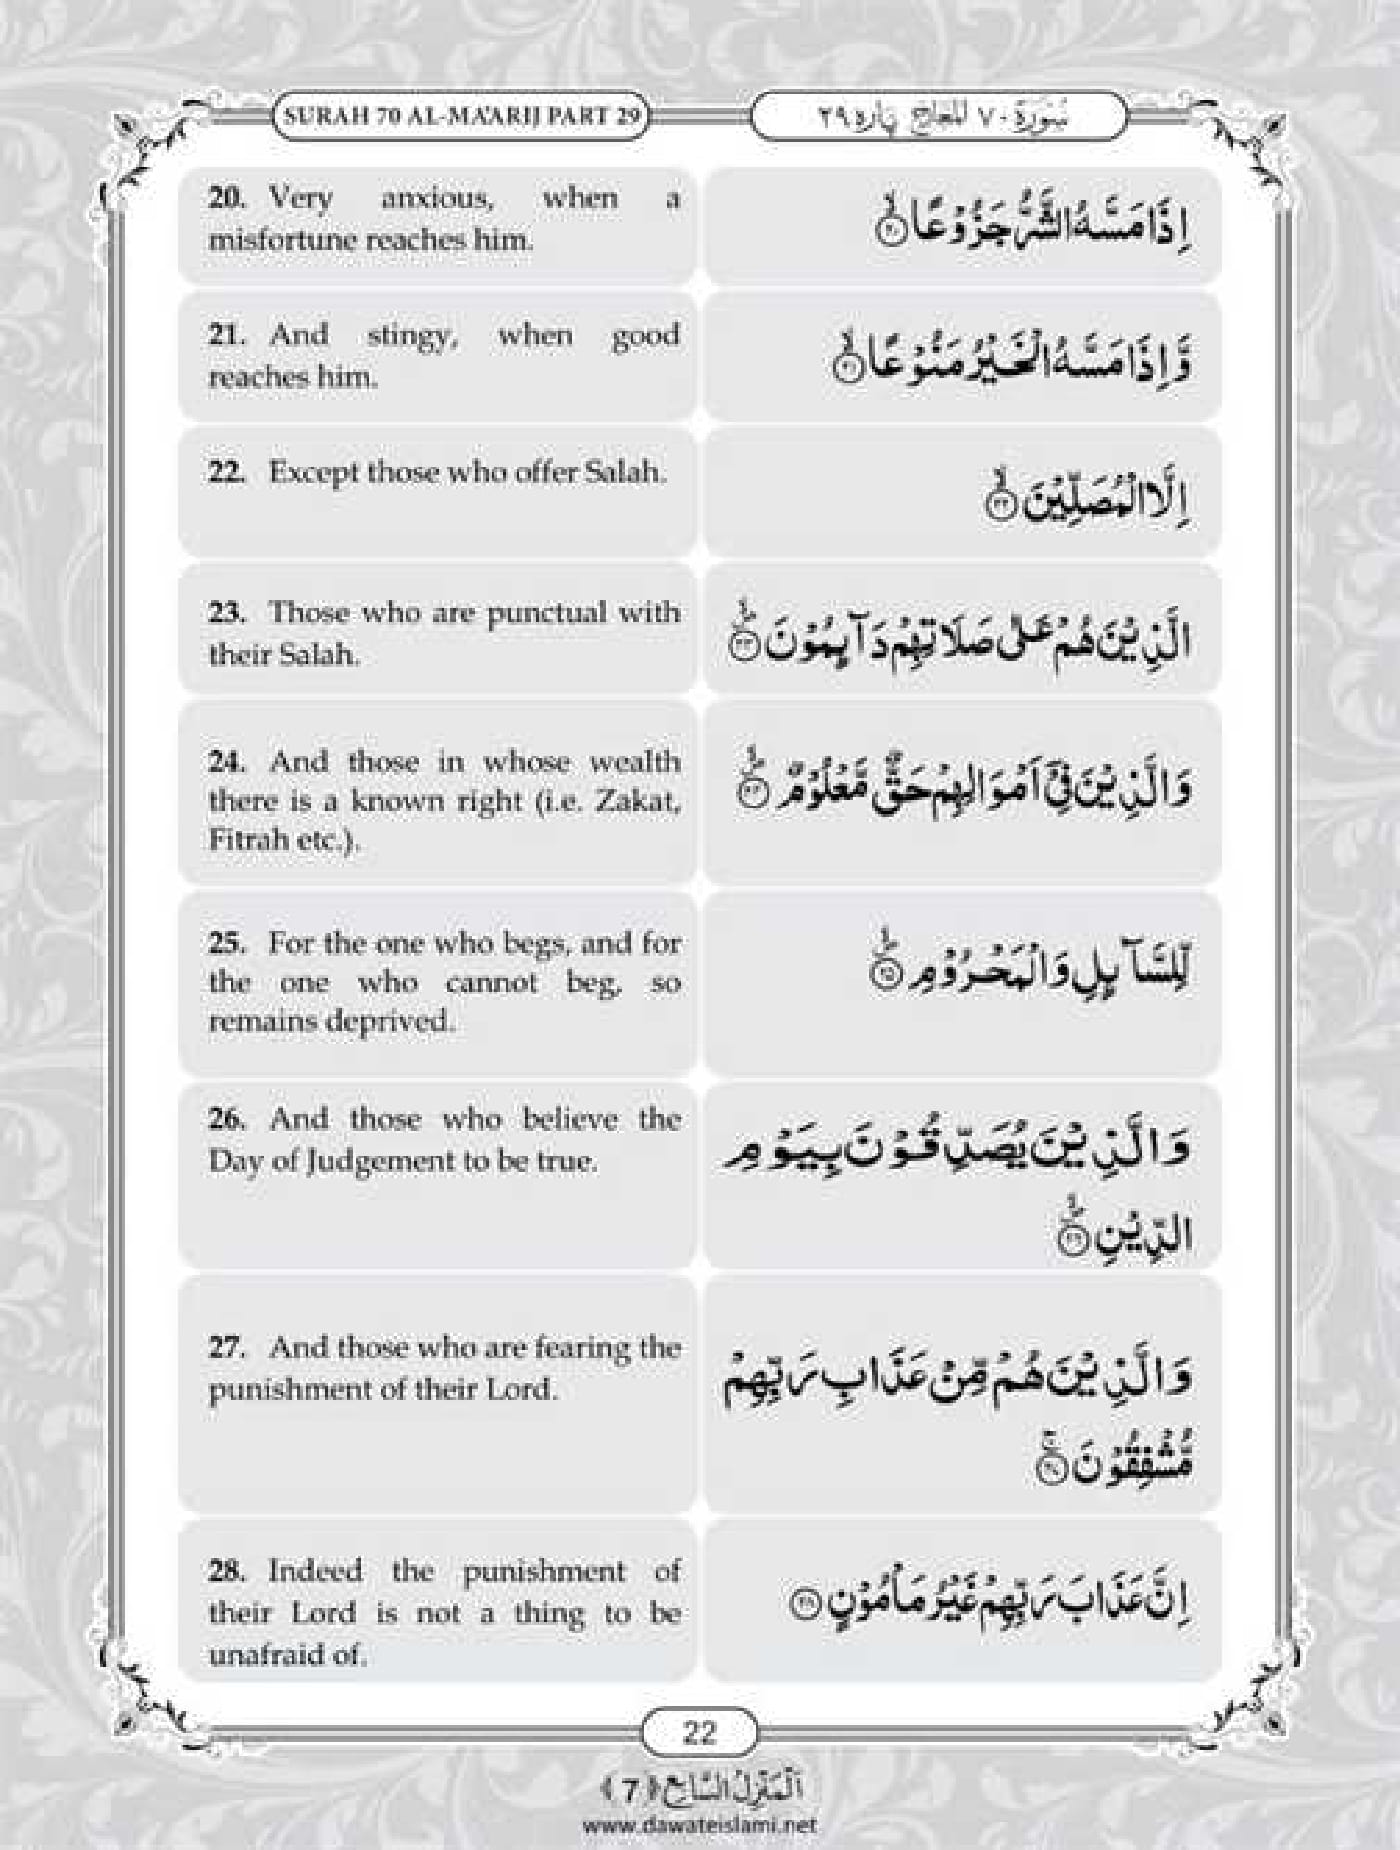 SURAH 70 AL-MA'ARIJ PART 29
سُوْرَة ٧٠ المعارج پاره ٢٩
20. Very anxious, when a
misfortune reaches him.
اِذَا مَسَّهُ الشَّرُّ جَزُوْعًا ۙ﴿٢٠﴾
21. And stingy, when good
reaches him.
وَّ اِذَا مَسَّهُ الْخَیْرُ مَنُوْعًا ۙ﴿٢١﴾
22. Except those who offer Salah.
اِلَّا الْمُصَلِّیْنَ ۙ﴿٢٢﴾
23. Those who are punctual with
their Salah.
الَّذِیْنَ هُمْ عَلٰى صَلَاتِهِمْ دَآىِٕمُوْنَ ۪ۙ﴿٢٣﴾
24. And those in whose wealth
there is a known right (i.e. Zakat,
Fitrah etc.).
وَ الَّذِیْنَ فِیْۤ اَمْوَالِهِمْ حَقٌّ مَّعْلُوْمٌ ۪ۙ﴿٢٤﴾
25. For the one who begs, and for
the one who cannot beg, so
remains deprived.
لِّلسَّآىِٕلِ وَ الْمَحْرُوْمِ ۪ۙ﴿٢٥﴾
26. And those who believe the
Day of Judgement to be true.
وَ الَّذِیْنَ یُصَدِّقُوْنَ بِیَوْمِ
الدِّیْنِ ۪ۙ﴿٢٦﴾
27. And those who are fearing the
punishment of their Lord.
وَ الَّذِیْنَ هُمْ مِّنْ عَذَابِ رَبِّهِمْ
مُّشْفِقُوْنَ ۚ﴿٢٧﴾
28. Indeed the punishment of
their Lord is not a thing to be
unafraid of.
اِنَّ عَذَابَ رَبِّهِمْ غَیْرُ مَاْمُوْنٍ ﴿٢٨﴾
22
اَلْمَنْزِلُ السَّابِع ﴿7﴾
www.dawateislami.net